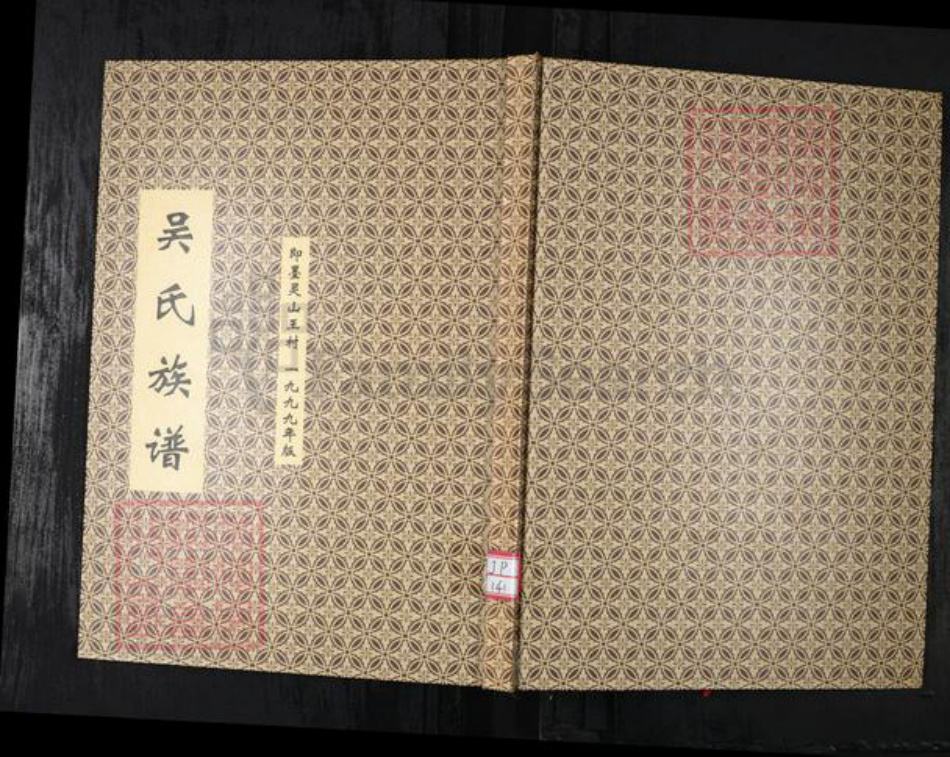 吴氏族谱
即墨灵山王村 一九九九年版
JP
141